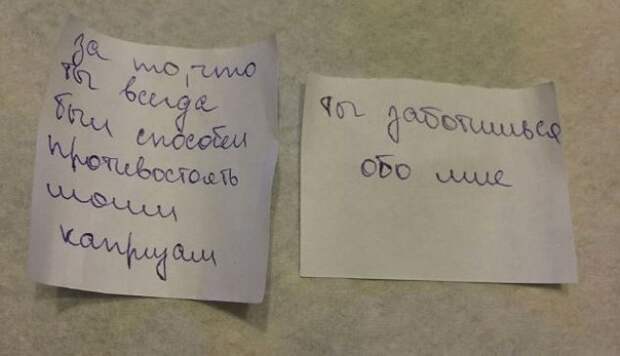 за то, что
ты всегда
был способен
противостоять
моим
капризам
ты заботишься
обо мне